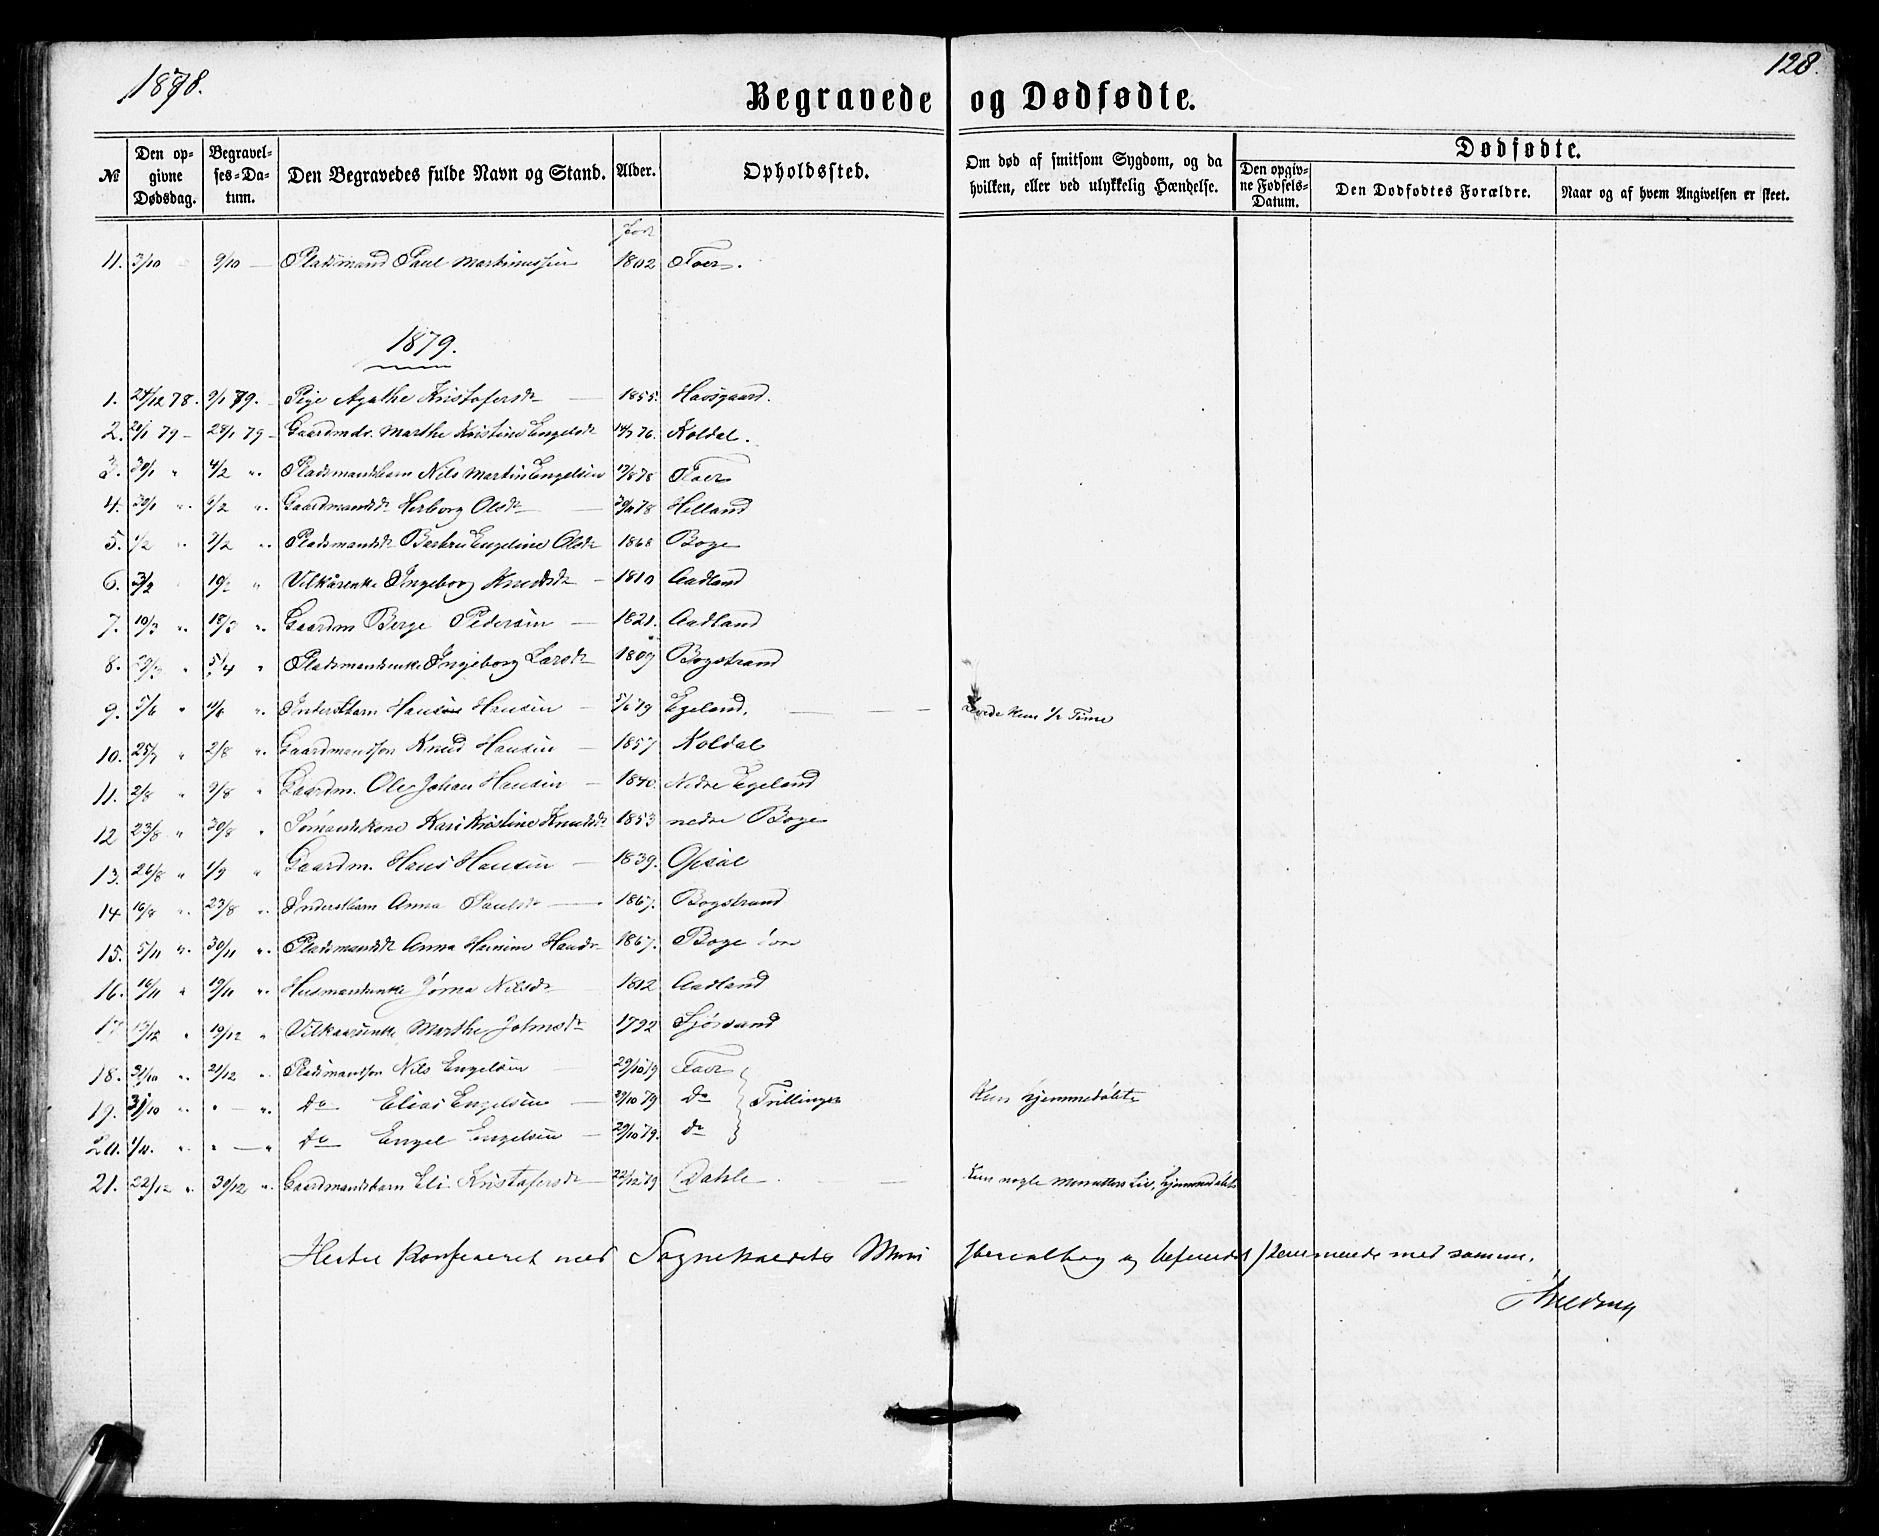 1878.
128.
Begravede og Dødfødte.
№
Den opgivne Dødsdag.
Begravelses-Datum.
Den Begravedes fulde Navn og Stand.
Alder.
Opholdssted.
Om død af smitsom Sygdom, og da hvilken, eller ved ulykkelig Hændelse.
Dødfødte.
Den opgivne Fødsels-Datum.
Den Dødfødtes Forældre.
Naar og af hvem Angivelsen er skeet.
11. 3/10 9/10 Pladsmand Paul Martinussen 1802
1879.
1. 24/12 78. 9/1 79. Pige Agathe Kristofersdr 1855. Havsgaard.
2. 20/1 79 28/1 79 Gaardmdr. Marthe Kristine Engelsdr 76. Koldal.
3. 30/1 " 4/2 " Pladsmandsbarn Nils Martin Engelsen 17/8 78
4. 30/1 " 6/2 " Gaardmandsdr Herborg Olsdr 78 Helland
5. 1/2 " 7/2 " Pladsmandsdr Engeline Olsdr 1868 Boge
6. 3/2 " " Vilkårenke Ingeborg Knudsdr 1810 Aadland
7. 10/3 " 18/3 " Gaardm Berge Pedersen 1821. Aadland
8. 29/3 " 5/4 " Pladsmandsenke Ingeborg Larsdr 1809 Bogstrand
9. 5/6 " " Inderstbarn Hansen 5/6 79 Egeland. Levede kun 1/2 Time
10. 25/7 " 2/8 " Gaardmandssøn Knud Hansen 1857 Koldal
11. 2/8 " 9/8 " Gaardm. Ole Johan Hansen 1840. Nedre Egeland
12 23/8 " 30/8 " Sømandskone Kari Kristine Knudsdr 1853 nedre Boge
13. 26/8 " 1/9 " Gaardm. Hans Hansen 1839. Opsal
14 16/8 " 23/8 " Inderstbarn Anna Paulsdr 1867. Bogstrand
15. 5/11 " 30/11 " Pladsmandsdr Anna Hansdr 1867. Boge
16. 16/11 " 19/11 " Husmandsenke Jørna Nilsdr 1812 Aadland
17 13/12 " 19/12 " Vilkaarsenke Marthe Johnsdr 1792 Sjørsand
18. 31/10 " 21/12 " Pladsmandssøn Nils Engelsen 29/10 79
19. 31/10 " " — " Do Elias Engelsen 29/10 79 Do Trillinger Kun hjemmedøbt
20. 1/11. " " — " Do Engel Engelsen 29/10 79. Do
21. 22/12 " 30/12 " Gaardmandsbarn Eli Kristofersdr 22/12 79 Dahle Kun nogle Minutters Liv, hjemmedøbt
Hertil konfereret med Sognekaldets Ministerialbog og befundet stemmende med samme.